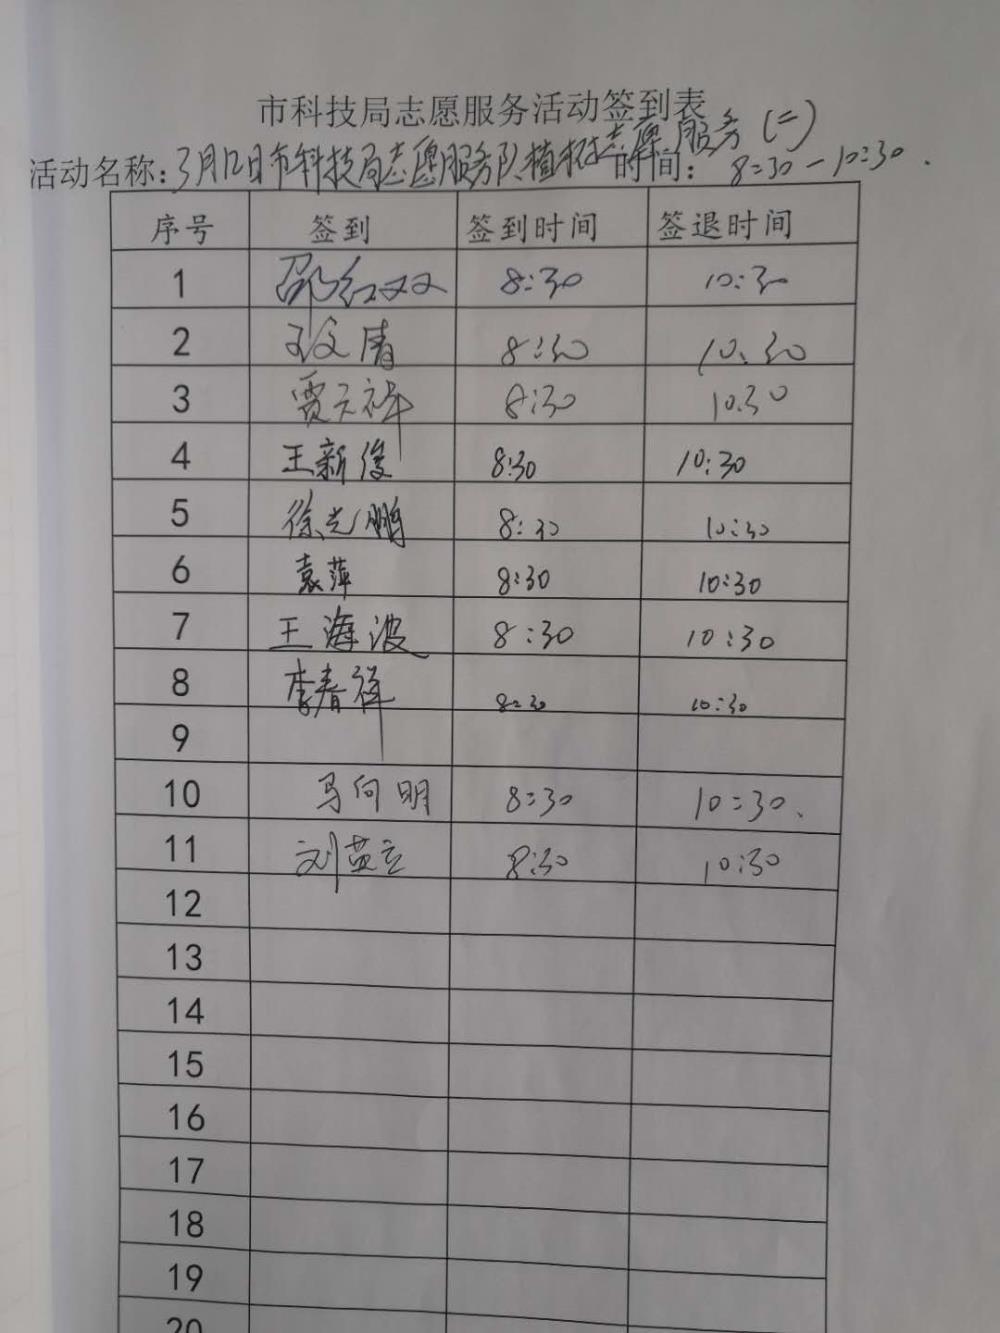 市科技局志愿服务活动签到表
活动名称：3月12日市科技局志愿服务队植树志愿服务(二) 时间：8:30-10:30.
序号 签到 签到时间 签退时间
1 邵红双 8:30 10:30
2 文清 8:30 10:30
3 贾天祥 8:30 10:30
4 王新俊 8:30 10:30
5 徐志鹏 8:30 10:30
6 袁萍 8:30 10:30
7 王海波 8:30 10:30
8 李春祥 8:30 10:30
9
10 马向明 8:30 10:30、
11 刘英立 8:30 10:30
12
13
14
15
16
17
18
19
20